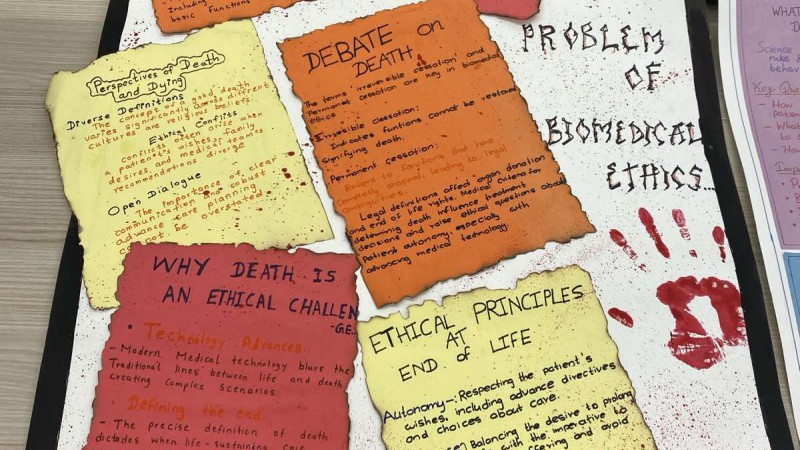 Including
basic functions
PROBLEM
OF
BIOMEDICAL
ETHICS...
Perspectives of Death
and Dying
Diverse Definitions
The concept of a good death
varies significantly across different
cultures are religious beliefs.
Ethical Conflicts
conflicts often arise when
a patient's wishes, family
desires, and medical team's
recommendations diverge
Open Dialogue
The importance of clear
communication and robust
advance care planning
cannot be overstated.
DEBATE on
DEATH
The terms "irreversible cessation" and
Permanent cessation are key in biomedical
Ethics
Irreversible cessation:
Indicates funtions cannot be restored
signifying death.
Permanent cessation:
Refers to functions that have
completely stopped, leading to legal
Legal definitions affect organ donation
and end of life rights. Medical criteria for
determing death influence treatment
decisions and raise ethical questions about
patient autonomy, especially with
advancing medical technology.
WHY DEATH IS
AN ETHICAL CHALLEN
-G.E.
• Technology Advances
- Modern Medical technology blure the
Traditional lines between life and death
creating complex scenarios.
Defining the end
- The precise definition of death
dictades when life-sustaining care
ETHICAL PRINCIPLES
AT
END of LIFE
Autonomy-: Respecting the patient's
wishes, including advance directives
and choices about care.
Balancing the desire to prolong
with the imperative to
suffering and avoid
WHAT
D
Science
rules &
behav
Key Que
- How
patien
- What
to
- How
Impo
- P